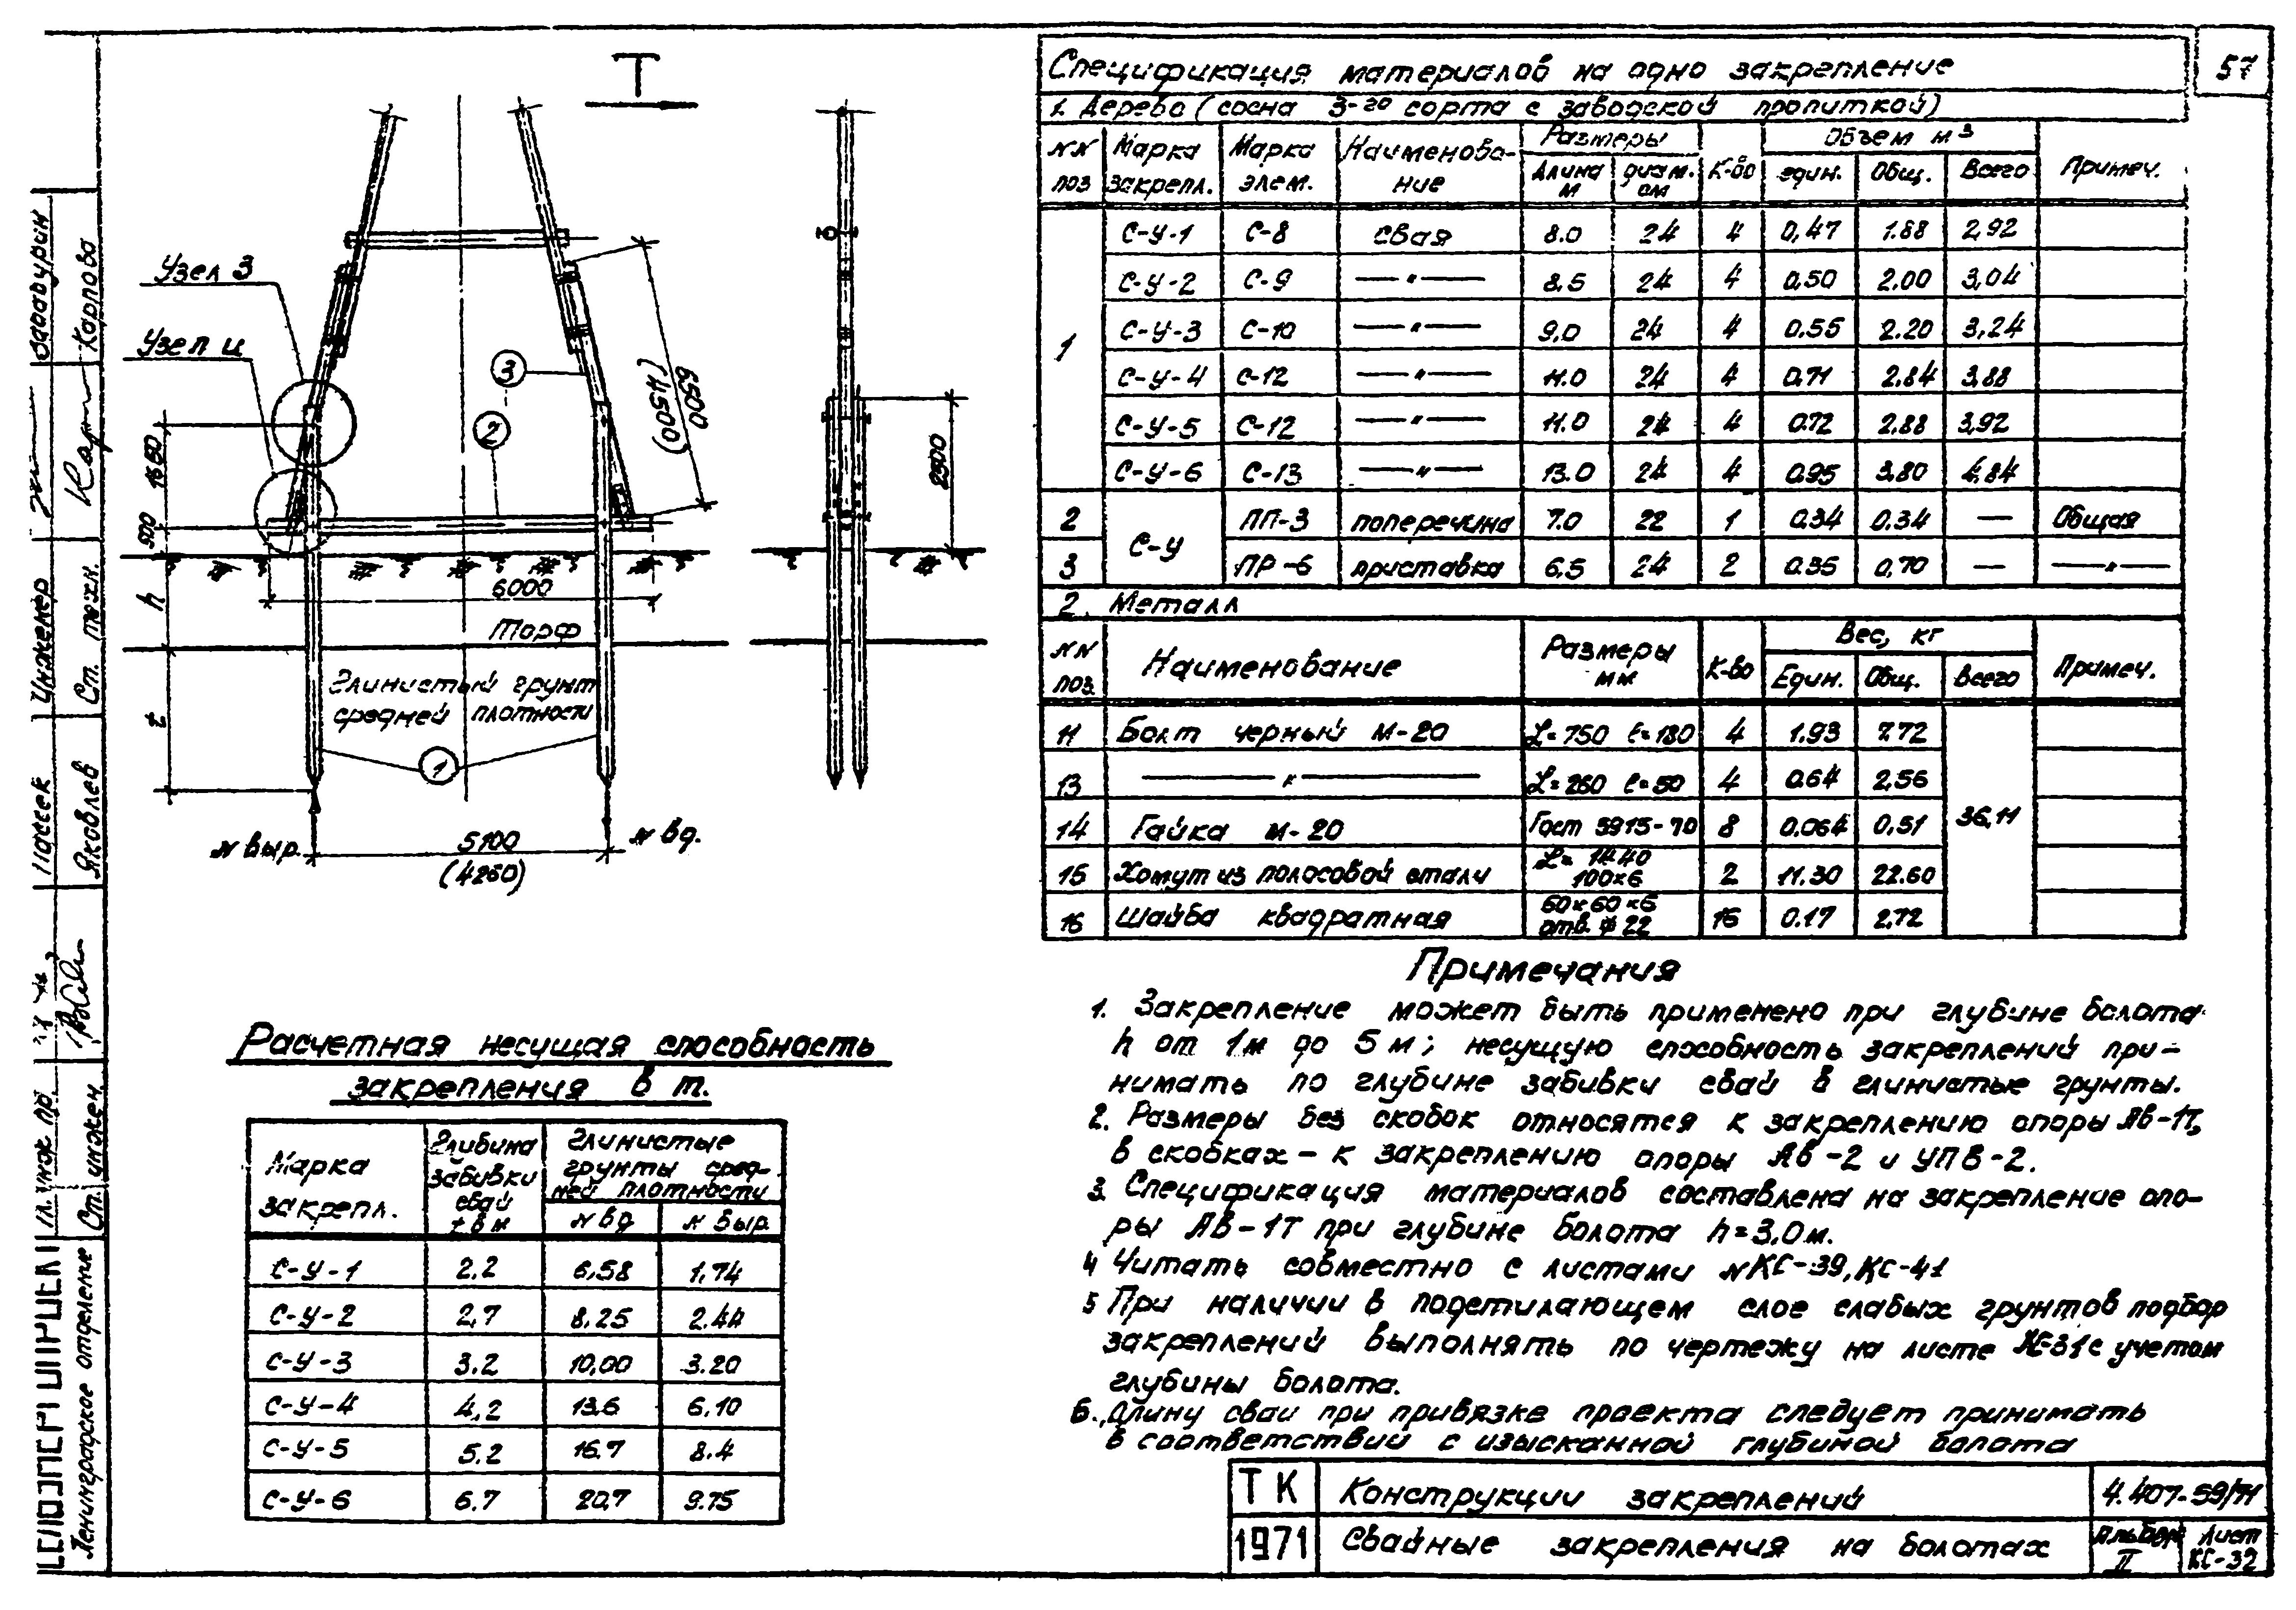 57
Т
Узел 3
Узел 4
3
2
1650
500
h
t
6500
(4500)
2500
6000
Торф
Глинистый грунт
средней плотности
1
N выр.
N вд.
5100
(4250)
Спецификация материалов на одно закрепление
1. Дерево (сосна 3-го сорта с заводской пропиткой)
NN поз | Марка закрепл. | Марка элем. | Наименование | Размеры | К-во | Объем м3 | Примеч.
Длина м | диам. см | един. | Общ. | Всего
1 | С-У-1 | С-8 | свая | 8.0 | 24 | 4 | 0,47 | 1.88 | 2,92
С-У-2 | С-9 | —"— | 8,5 | 24 | 4 | 0,50 | 2.00 | 3,04
С-У-3 | С-10 | —"— | 9,0 | 24 | 4 | 0.55 | 2.20 | 3,24
С-У-4 | С-12 | —"— | 11.0 | 24 | 4 | 0.71 | 2.84 | 3,88
С-У-5 | С-12 | —"— | 11.0 | 24 | 4 | 0.72 | 2.88 | 3,92
С-У-6 | С-13 | —"— | 13.0 | 24 | 4 | 0.95 | 3.80 | 4,84
2 | С-У | ПП-3 | поперечина | 7.0 | 22 | 1 | 0.34 | 0.34 | — | Общая
3 | ПР-6 | приставка | 6,5 | 24 | 2 | 0.35 | 0,70 | — | —"—
2. Металл
NN поз. | Наименование | Размеры мм | К-во | Вес, кг | Примеч.
Един. | Общ. | Всего
11 | Болт черный М-20 | L=750 ℓ=180 | 4 | 1.93 | 7.72 | 36,11
13 | —"— | L=260 ℓ=50 | 4 | 0.64 | 2,56
14 | Гайка М-20 | Гост 5915-70 | 8 | 0.064 | 0,51
15 | Хомут из полосовой стали | L= 1440 100×6 | 2 | 11.30 | 22.60
16 | Шайба квадратная | 60×60×6 отв. ф 22 | 16 | 0.17 | 2,72
Примечания
1. Закрепление может быть применено при глубине болота
h от 1м до 5м; несущую способность закреплений при-
нимать по глубине забивки свай в глинистые грунты.
2. Размеры без скобок относятся к закреплению опоры АВ-1т,
в скобках – к закреплению опоры АВ-2 и УПВ-2.
3. Спецификация материалов составлена на закрепление опо-
ры АВ-1т при глубине болота h=3,0м.
4 Читать совместно с листами NКС-39, КС-41
5 При наличии в подстилающем слое слабых грунтов подбор
закреплений выполнять по чертежу на листе с учетом
глубины болота.
6. Длину сваи при привязке проекта следует принимать
в соответствий с изысканной глубиной болота
Расчетная несущая способность
закрепления в т.
Марка закрепл. | Глубина забивки свай t в м | Глинистые грунты сред- ней плотности
N вд | N выр.
С-У-1 | 2.2 | 6,58 | 1,74
С-У-2 | 2,7 | 8.25 | 2.44
С-У-3 | 3.2 | 10,00 | 3.20
С-У-4 | 4,2 | 13.6 | 6.10
С-У-5 | 5.2 | 16.7 | 8.4
С-У-6 | 6.7 | 20,7 | 9.75
ТК | Конструкции закреплений | 4.407-59/71
1971 | Свайные закрепления на болотах | Альбом II | Лист КС-32
Карпова
Инженер
Ст. техн.
Яковлев
Ст. инжен.
Ленинградское отделение